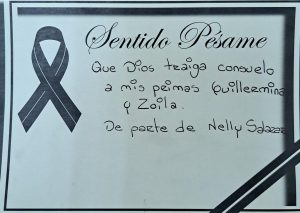 Sentido Pésame
Que Dios traiga consuelo
a mis primas Guillermina
y Zoila.
De parte de Nelly Salazar